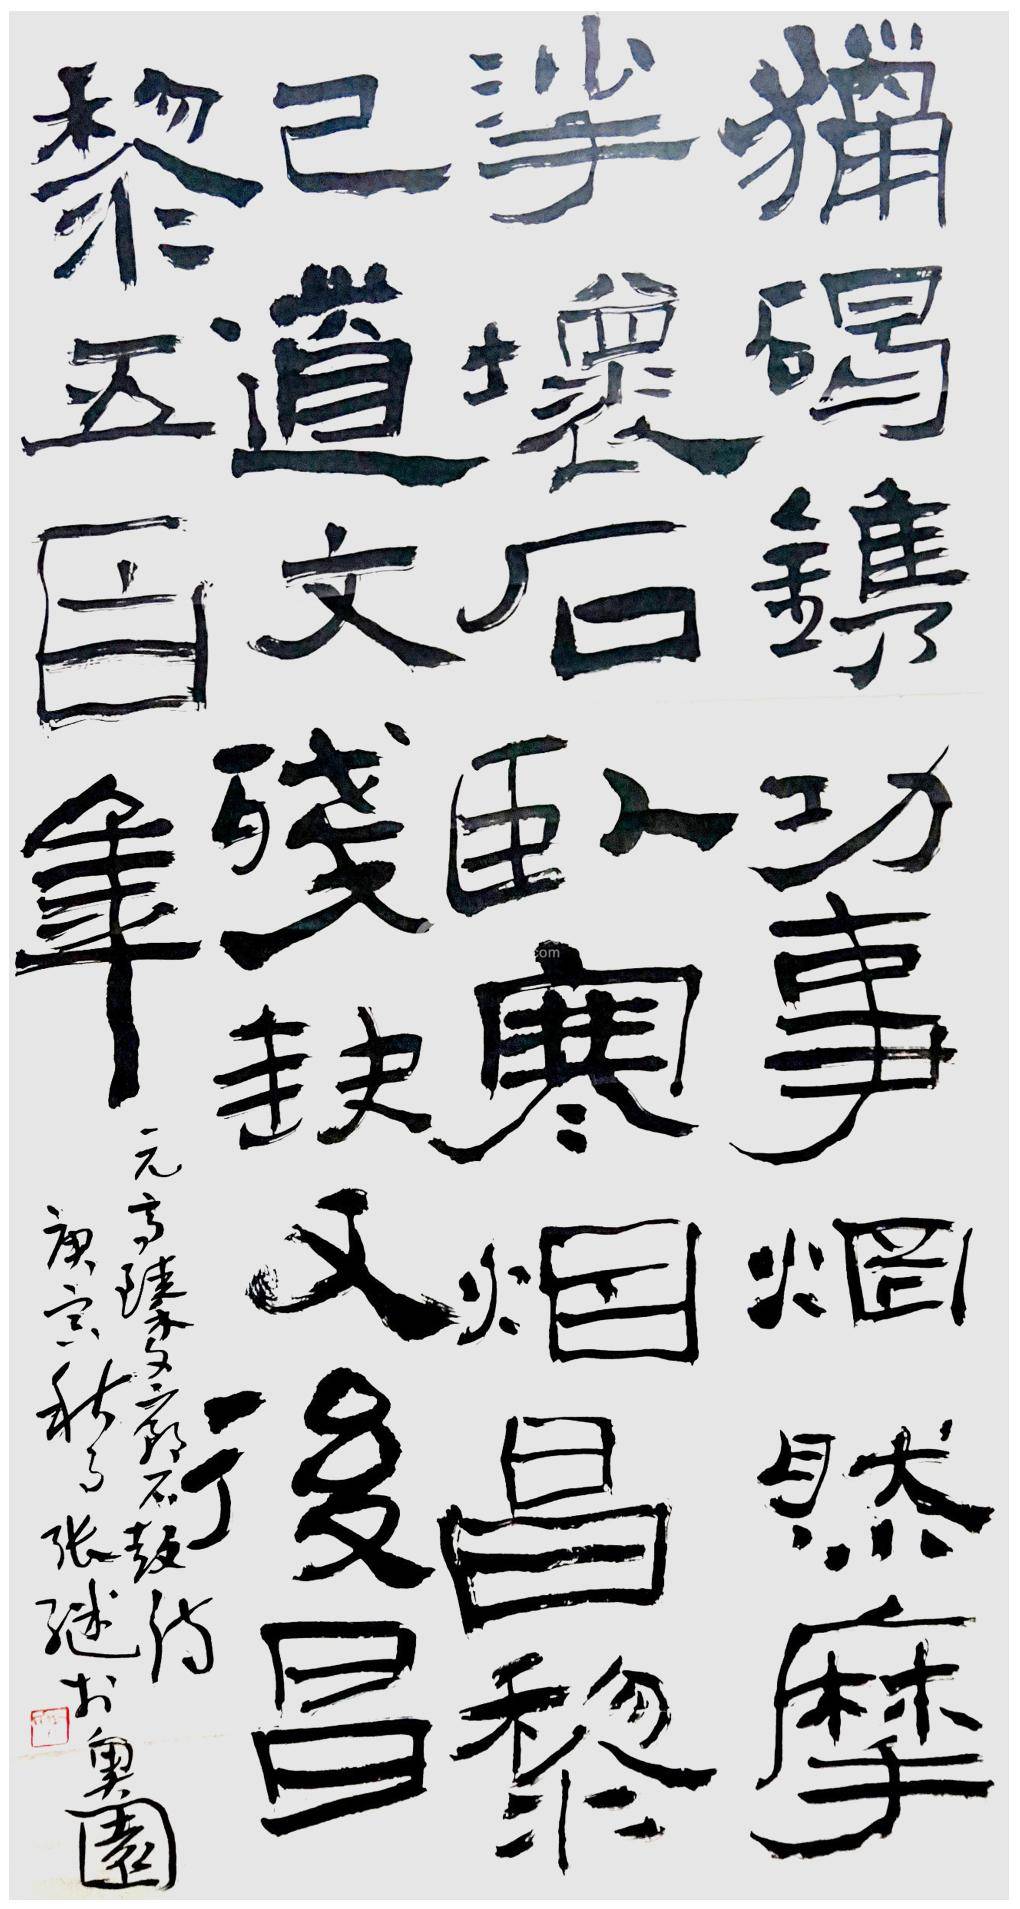 獵碣鐫功事惘然摩
挲壞石臥寒烟昌黎
已道文殘缺又後昌
黎五百年
元高臻文廟石鼓诗
庚寅秋月张继於奥園
com